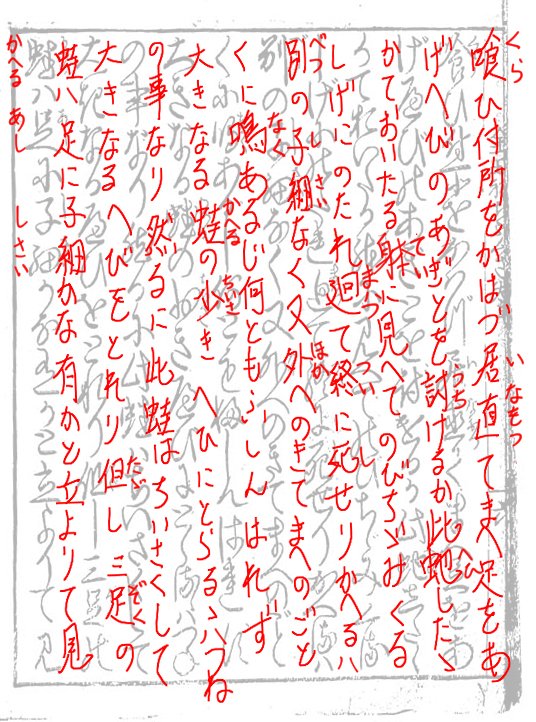 喰ひ付所をかはづ居直てまへ足をあ
げへびのあぎとを討けるか此虵したゝ
かておいたる躰に見へてのびちゞみくる
しげにのたれ廻て終に死せりかへるハ
別の子細なく又外へのきてまへのごと
くに鳴あるじ何ともふしんはれず
大きなる蛙の少き へひにとらるゝハつね
の事なり然るに此蛙はちいさくして
大きなるへびをとれり但し三足の
蛙ハ足に子細かな有かと立よりて見